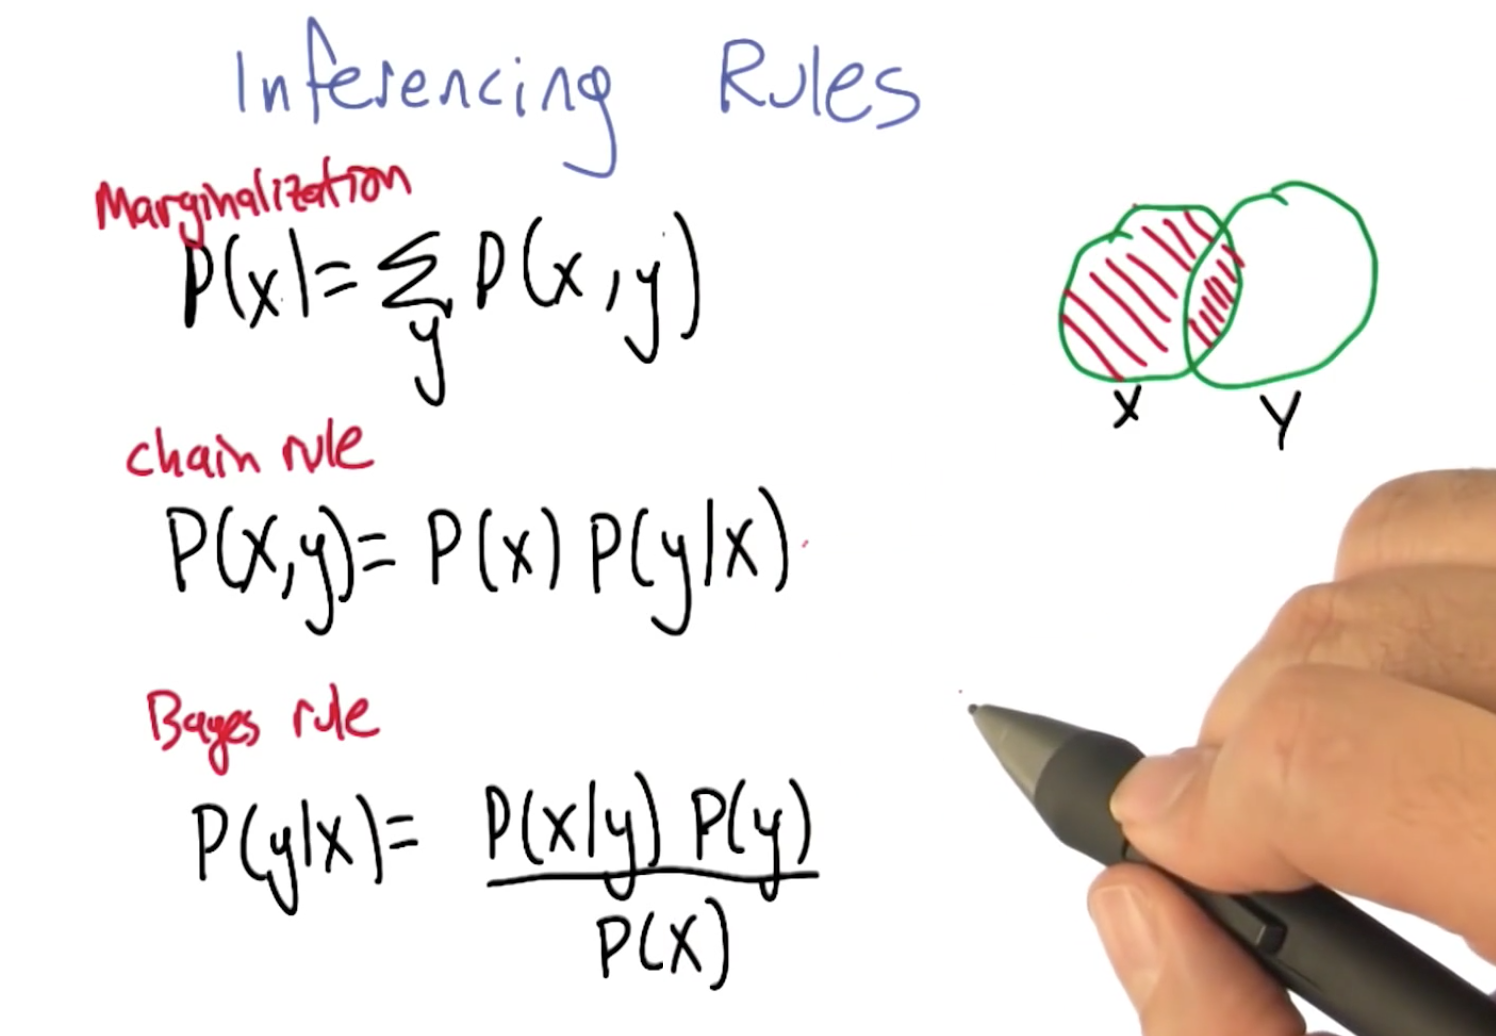 Inferencing Rules
Marginalization
P(x)= Σ P(x,y)
y
X Y
chain rule
P(x,y)= P(x) P(y|x)
Bayes rule
P(y|x)= P(x|y) P(y)
P(x)